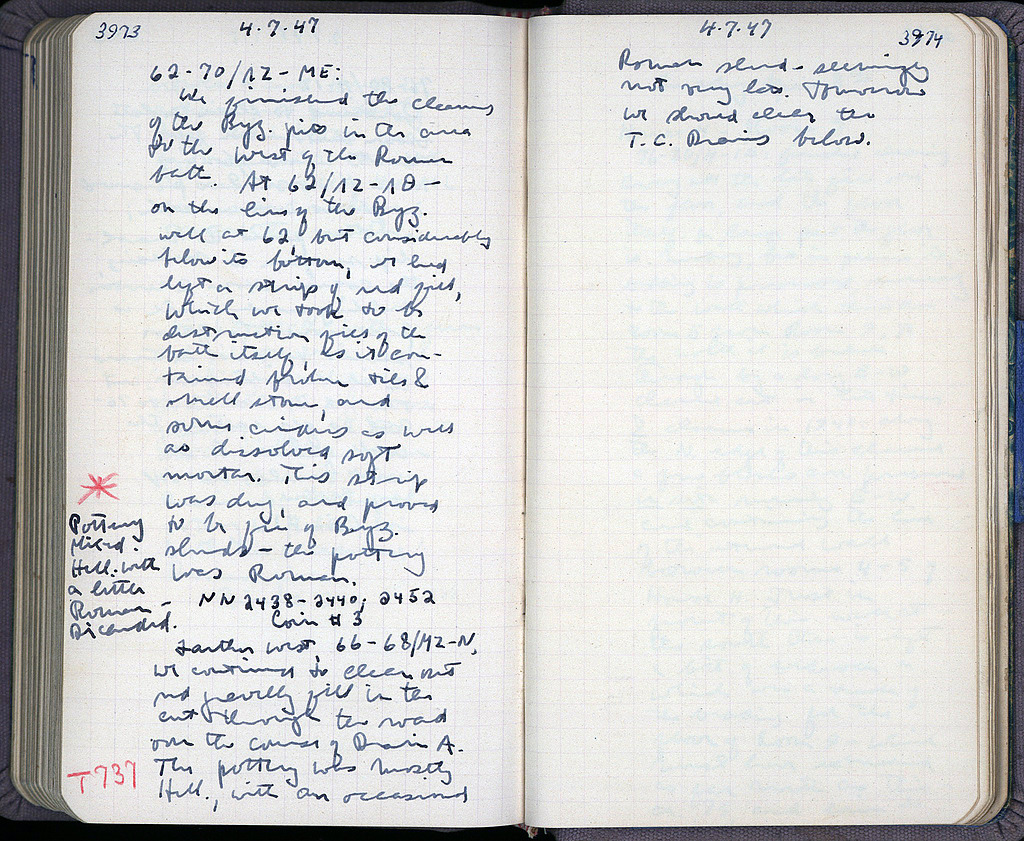 3973
4.7.47
62-70/12-ME:
We finished the cleaning
of the Byz. pits in the area
to the west of the Roman
bath. At 62/12-18-
on the line of the Byz.
wall at 62, but considerably
below its bottom, we had
left a strip of red fill,
which we took to be
destruction fill of the
bath itself, as it con-
tained broken tiles &
small stone, and
some cinders as well
as dissolved soft
mortar. This strip
was dug, and proved
to be free of Byz.
sherds - the pottery
was Roman.
NN 2438-2440; 2452
Coin # 3
Farther west, 66-68/ME-N,
we continued to clean out
red gravelly fill in the
cut through the road
over the course of Drain A.
The pottery was mostly
Hell., with an occasional
Pottery
Mixed.
Hell. with
a little
Roman -
Discarded.
T737
4.7.47
3974
Roman sherd - seemingly
not very late. Tomorrow
we should clear the
T.C. Drains below.